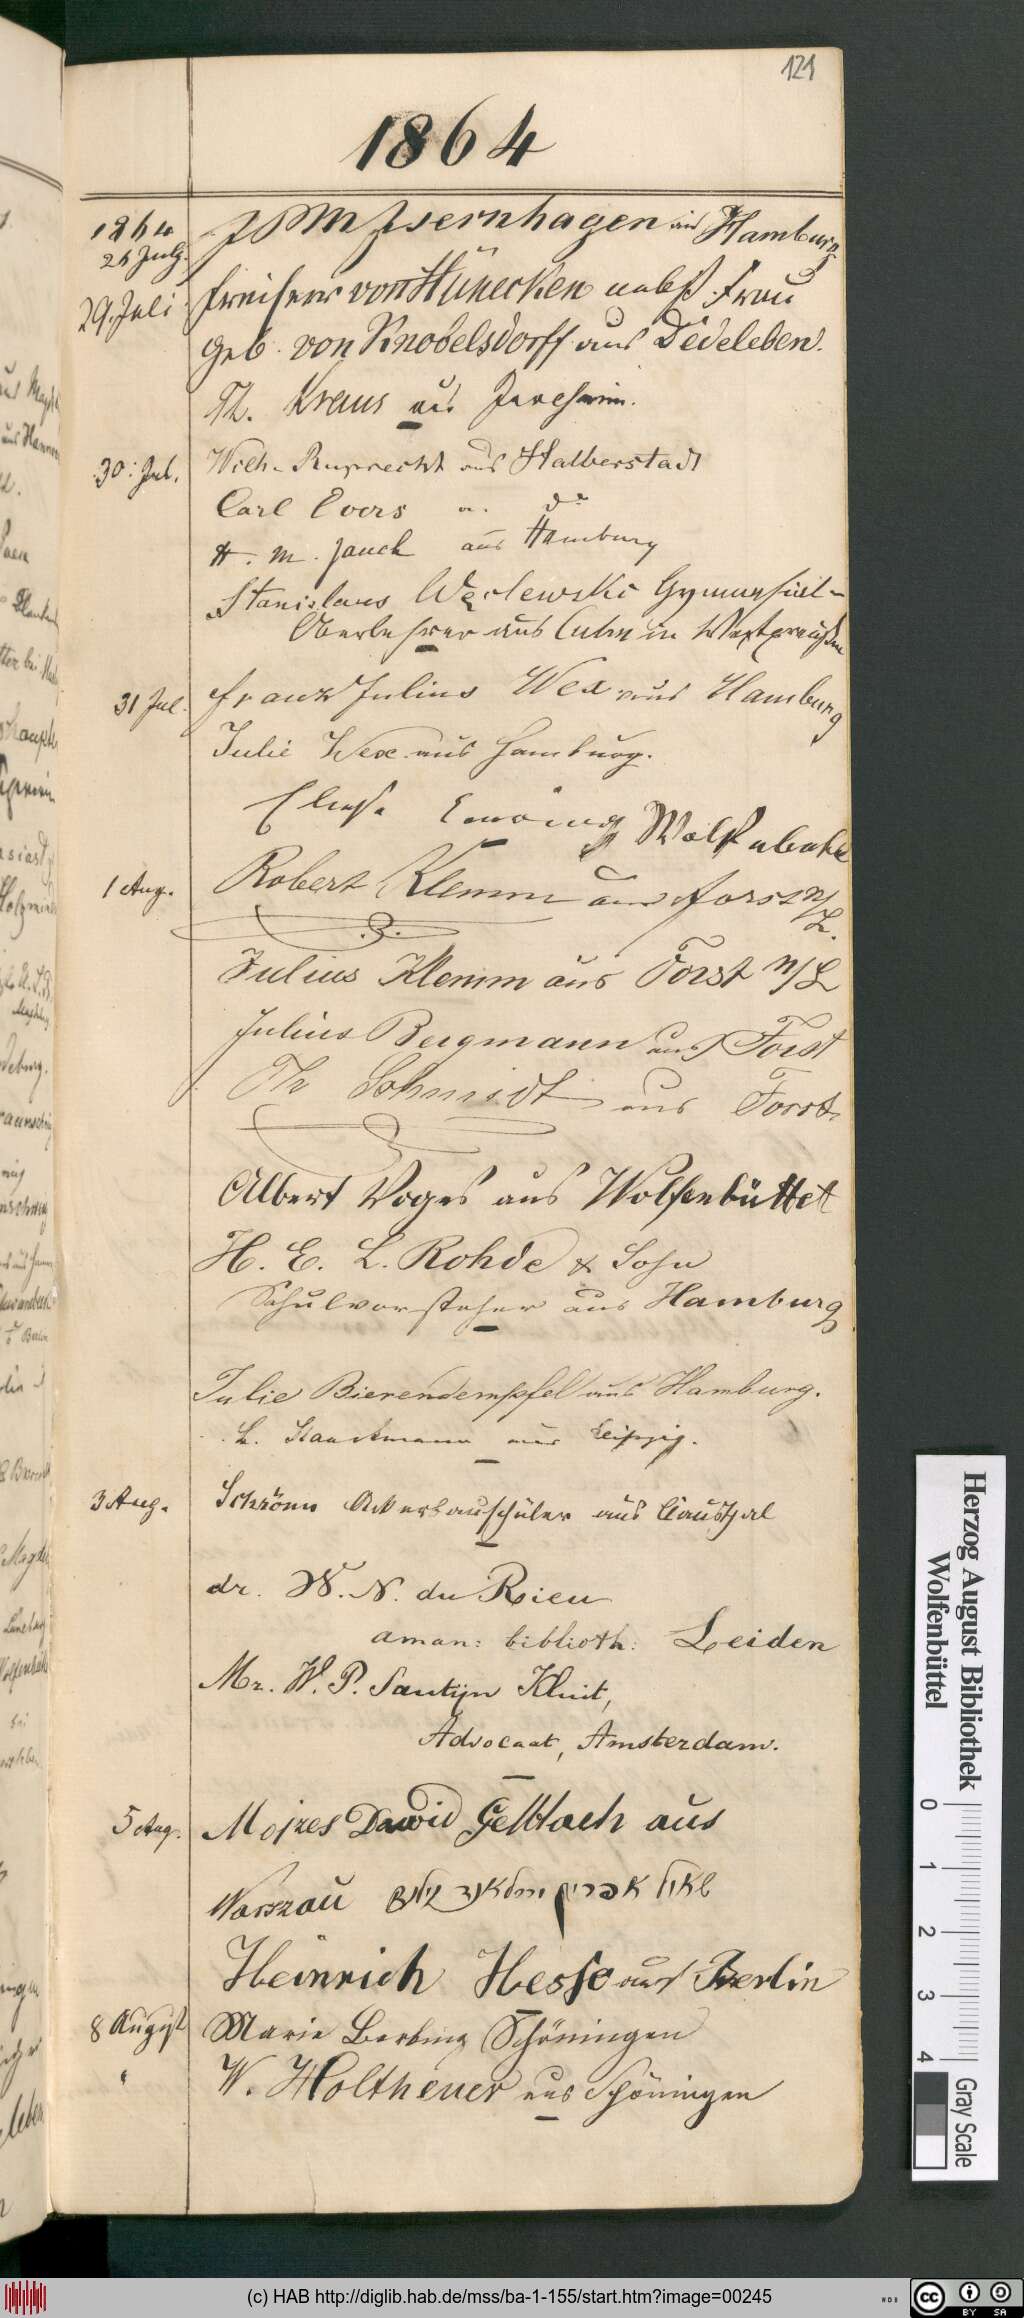 121
1864
1864
26 July. J P M Isernhagen aus Hamburg
29. Juli Freiherr von Hünecken nebst Frau
geb. von Knobelsdorff aus Dedeleben.
Th. Kraus aus
30: Jul. Wilh. Ruprecht aus Halberstadt
Carl Evers a. do
H. M. Jauch aus Hamburg
Stanislaus Węclewski Gymnasial-
Oberlehrer aus Culm in Westpreußen
31 Jul. Franz Julius Wex aus Hamburg
Julie Wex aus Hamburg.
1 Aug. Robert Klemm aus Forst n/L.
Julius Klemm aus Forst n/L
Julius Bergmann aus Forst
Th Schmidt aus Forst.
Albert Voges aus Wolfenbüttel
H. E. L. Rohde & Sohn
Schulvorsteher aus Hamburg
Julie Bierendempfel aus Hamburg.
L. Staackmann aus Leipzig.
3 Aug. Schrönn Ackerbauschüler aus Clausthal
dr. W. N. du Rieu
aman: biblioth: Leiden
Mr. W. P. Sautijn Kluit,
Advocaat, Amsterdam.
5 Aug. Mojzes Dawid Gelblach aus
Warszau
Heinrich Hesse aus Berlin
8 August Marie Berking Schöningen
" W. Holtheuer aus Schöningen
Herzog August Bibliothek
Wolfenbüttel
0 1 2 3 4
Gray Scale
(c) HAB http://diglib.hab.de/mss/ba-1-155/start.htm?image=00245
cc BY SA